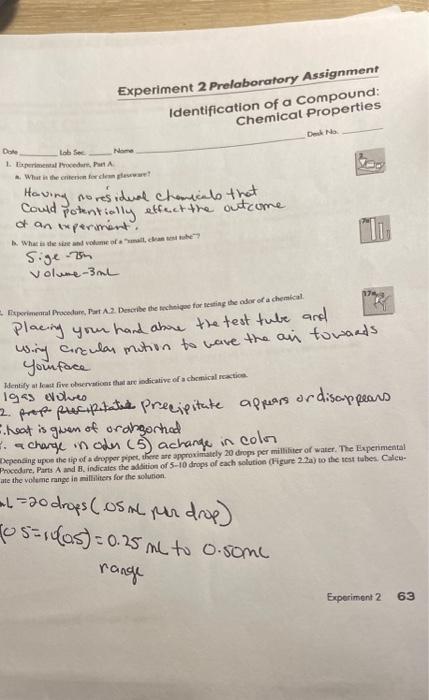 Experiment 2 Prelaboratory Assignment
Identification of a Compound:
Chemical Properties
Date Lab Sec. Name Desk No.
1. Experimental Procedure, Part A.
a. What is the criterion for clean glassware?
Having no residual chemicals that
Could potentially effect the outcome
of an experiment.
b. What is the size and volume of a "small, clean test tube"?
Size -75m
volume-3mL
. Experimental Procedure, Part A.2. Describe the technique for testing the odor of a chemical.
placing your hand above the test tube and
using circular motion to wave the air towards
your face
Identify at least five observations that are indicative of a chemical reaction.
1gas evolves
2. Precipitate appears or disappears
. heat is given of or absorbed
. a change in odor (5) a change in color
Depending upon the tip of a dropper pipet, there are approximately 20 drops per milliliter of water. The Experimental
Procedure, Parts A and B, indicates the addition of 5–10 drops of each solution (Figure 2.2a) to the test tubes. Calcu-
ate the volume range in milliliters for the solution.
mL = 20 drops (.05 mL per drop)
= 0.25 mL to 0.50mL
range
Experiment 2 63